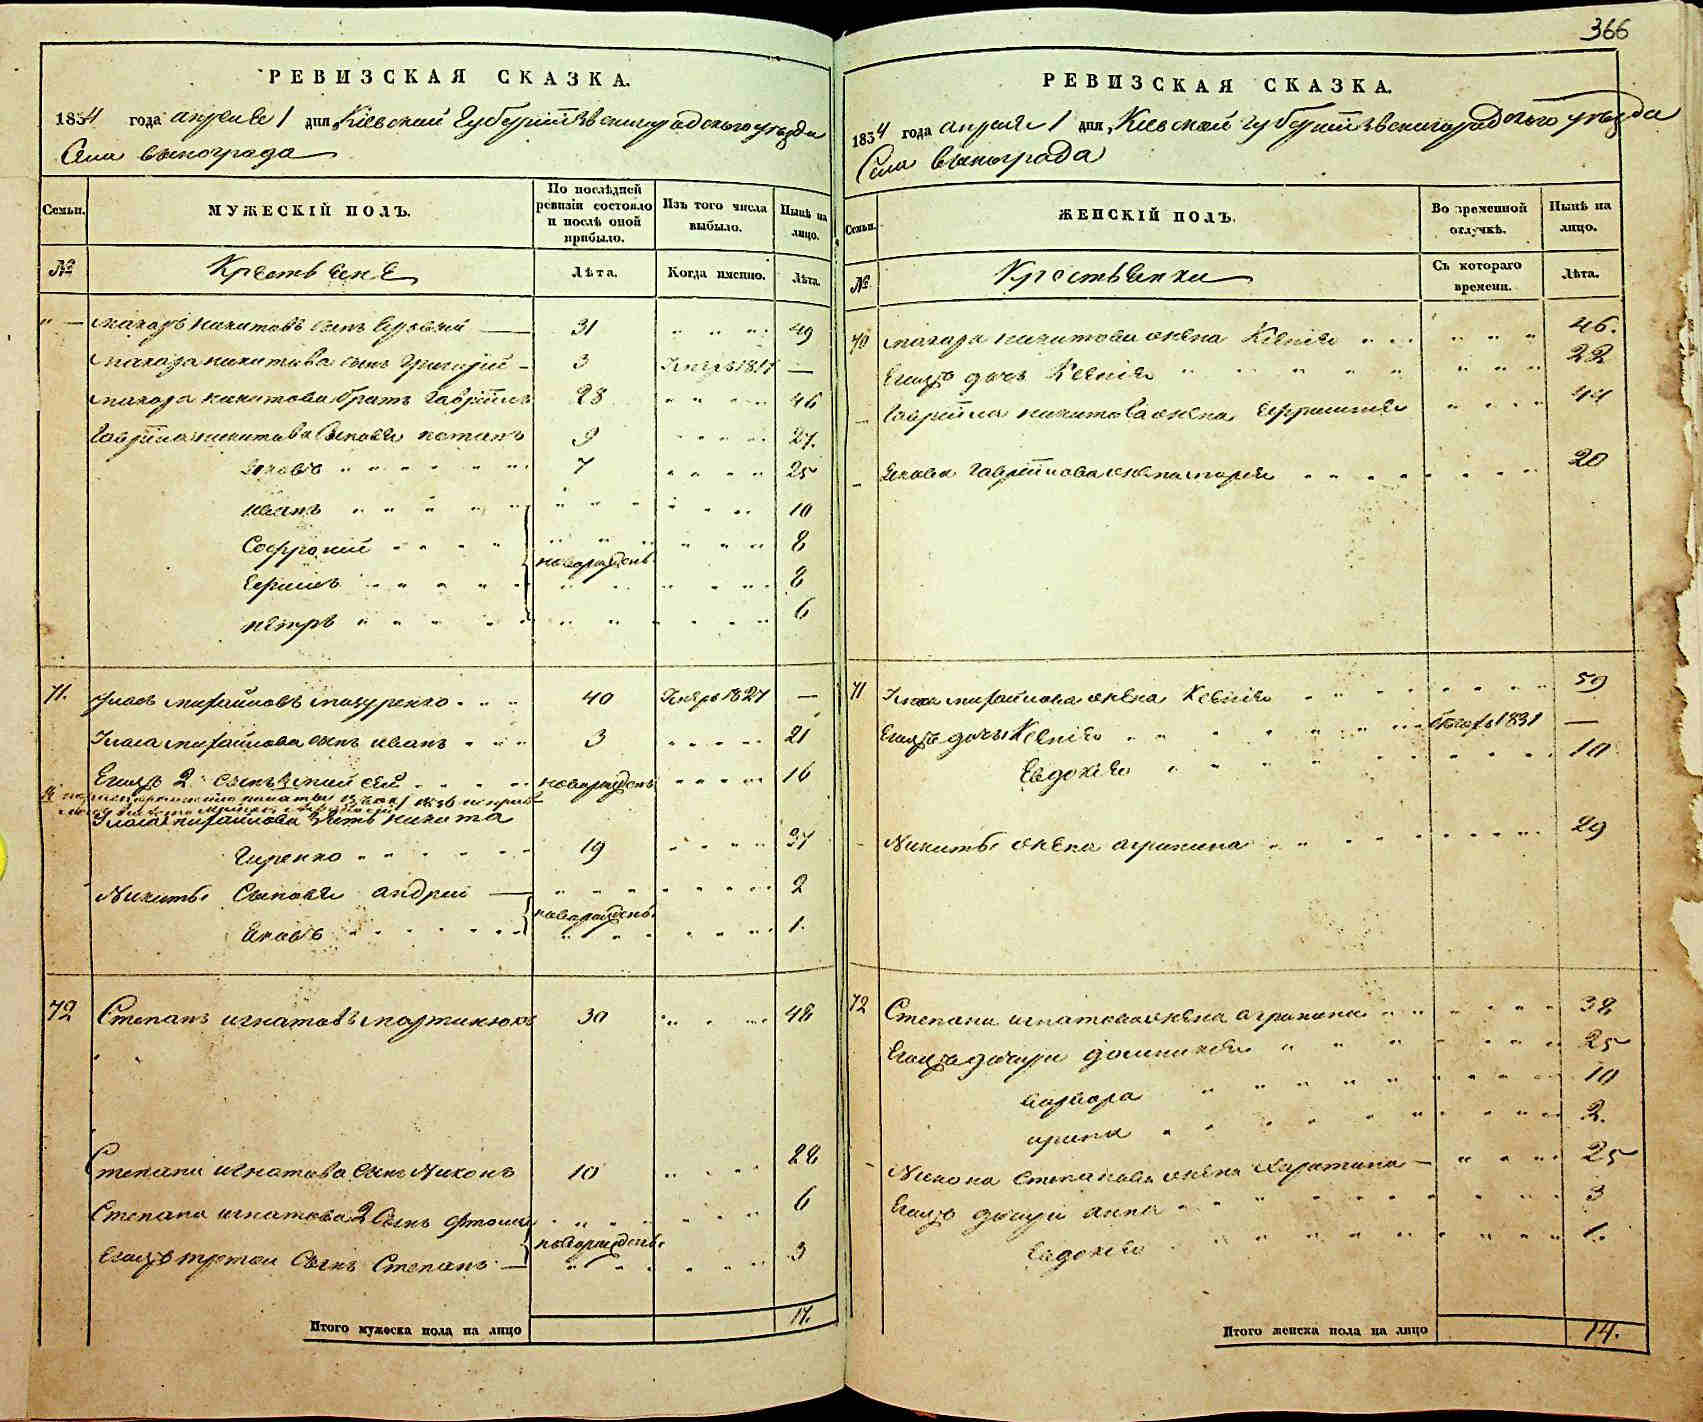 366
РЕВИЗСКАЯ СКАЗКА.
1834 года апреля 1 дня, Кіевской Губерніи Звенигородского уезда
Села винограда
Семьи.
МУЖЕСКІЙ ПОЛЪ.
По послѣдней ревизіи состояло и послѣ оной прибыло.
Изъ того числа выбыло.
Нынѣ на лицо.
№
Крестьяне
Лѣта.
Когда именно.
Лѣта.
" — макаръ никитовъ сынъ 31 " " " " 49
макара никитова сынъ Григорій 3 — 
макара никитова братъ Гаврііилъ 28 " " " " 46
Гавріила никитова Сыновья потапъ 9 " " " " 27.
яковъ " " " " 7 " " " " 25
иванъ " " " " 10
Софроній " " " " новорожденъ 8
Ефимъ " " " " 8
петръ " " " " 6
71. михайловъ мазуренко 40 1827 —
михайлова сынъ иванъ 3 " " " " 21
Егожъ 2 сынъ новорожденъ " " " " 16
михайлова зять никита
Гиренко " " " " 19 " " " " 37
Никиты Сыновья андрей — " " " " 2
яковъ " " " " новорожденъ 1.
72 Степанъ игнатовъ мартинюкъ 30 " " " " 48
Степана игнатова сынъ Никонъ 10 " " " " 28
Степана игнатова 2 Сынъ " " " " 6
Егожъ третій Сынъ Степанъ — новорожденъ " " " " 3
Итого мужеска пола на лицо 17.
РЕВИЗСКАЯ СКАЗКА.
1834 года апреля 1 дня, Кіевской губерніи Звенигородского уезда
Села винограда
Семьи.
ЖЕНСКІЙ ПОЛЪ.
Во временной отлучкѣ.
Нынѣ на лицо.
№
Крестьянки
Съ котораго времени.
Лѣта.
70 макара никитова жена Ксенія " " " " 46.
Егожъ дочь Ксенія " " " " 22
Гавріила никитова жена Ефросинія " " " " 44
якова Гавріилова жена марія " " " " 20
71 михайлова жена Ксенія " " " " 59
Егожъ дочь Ксенія " " " " 1831 —
Евдокія " " " " 10
Никиты жена агрипина " " " " 29
72 Степана игнатова жена агрипина " " " " 38
Егожъ дочери домникія " " " " 25
варвара " " " " 10
ирина " " " " 2.
Никона Степанова жена Харитина — " " " " 25
Егожъ дочери анна " " " " 3
Евдокія " " " " 1.
Итого женска пола на лицо 14.